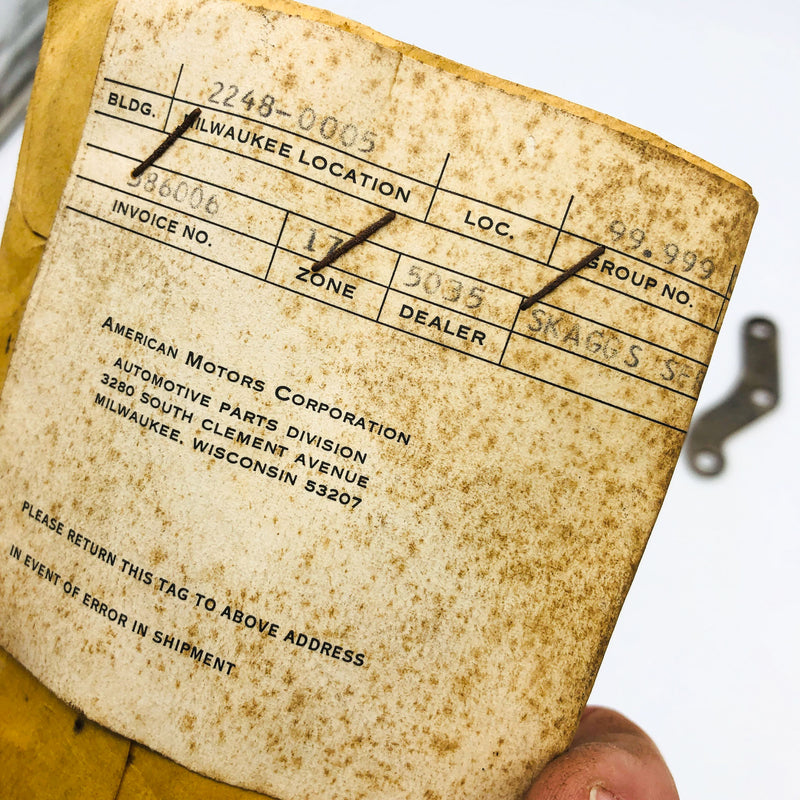 2248-0005
BLDG. MILWAUKEE LOCATION LOC. 99.999
586006 GROUP NO.
INVOICE NO. 17 5035 SKAGGS
ZONE DEALER
AMERICAN MOTORS CORPORATION
AUTOMOTIVE PARTS DIVISION
3280 SOUTH CLEMENT AVENUE
MILWAUKEE, WISCONSIN 53207
PLEASE RETURN THIS TAG TO ABOVE ADDRESS
IN EVENT OF ERROR IN SHIPMENT